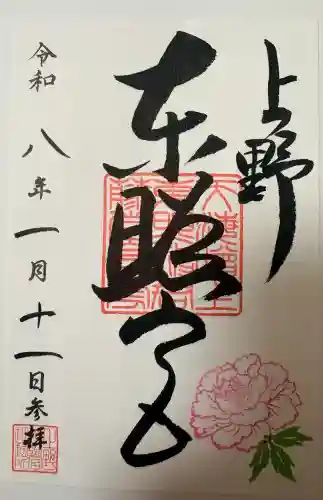 上野
東照宮
令和八年一月十一日参拝